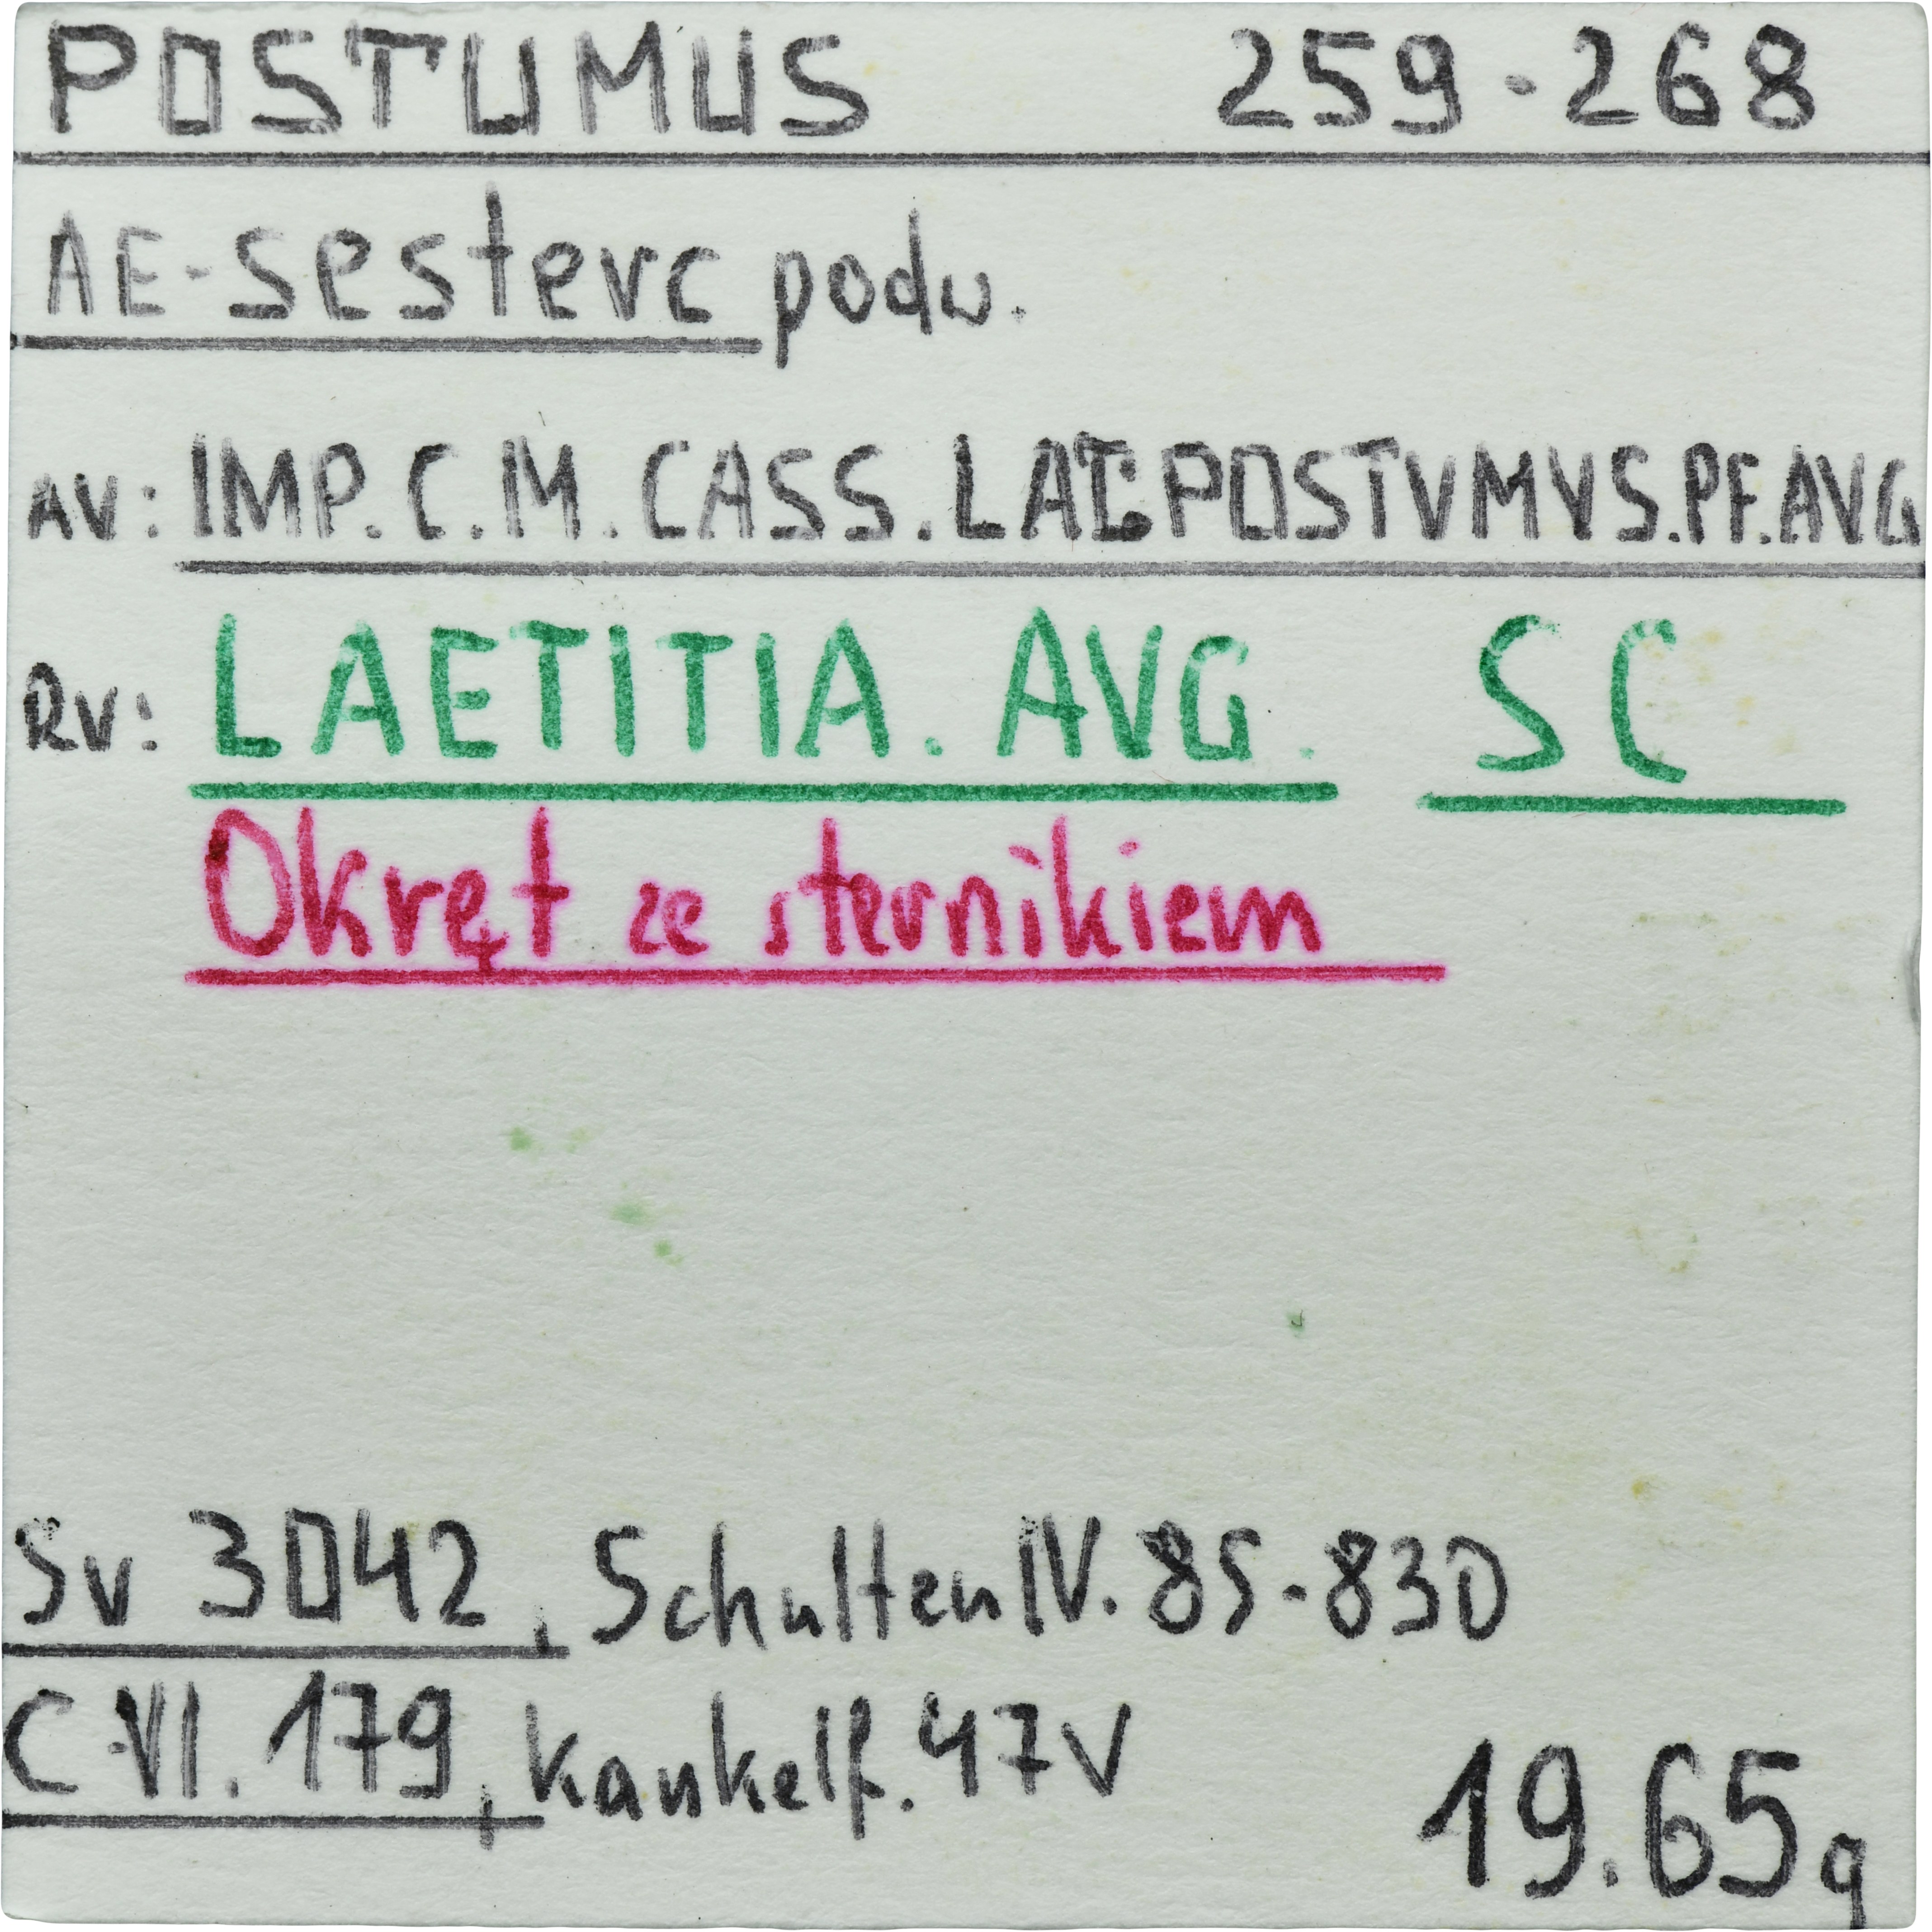 POSTUMUS 259-268
AE-sesterc podw.
AV: IMP. C. M. CASS. LAT POSTVMVS. PF. AVG
RV: LAETITIA. AVG. SC
Okręt ze sternikiem
Sv 3042, Schulten IV. 85-830
C VI. 179, Kankelf. 47V
19.65g